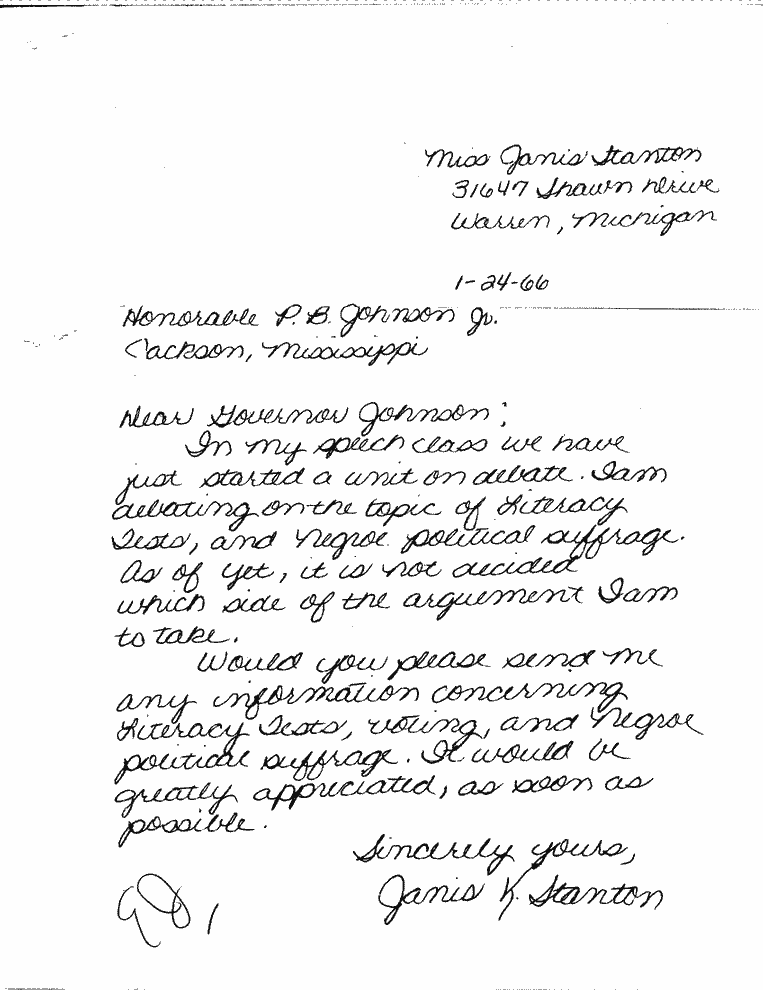 Miss Janis Stanton
31647 Shawn Drive
Warren, Michigan
1-24-66
Honorable P.B. Johnson Jr.
Jackson, Mississippi
Dear Governor Johnson;
In my speech class we have
just started a unit on debate. I am
debating on the topic of Literacy
Tests, and Negroe political suffrage.
As of yet, it is not decided
which side of the arguement I am
to take.
Would you please send me
any information concerning
Literacy Tests, voting, and Negroe
political suffrage. It would be
greatly appreciated, as soon as
possible.
Sincerely yours,
Janis K. Stanton